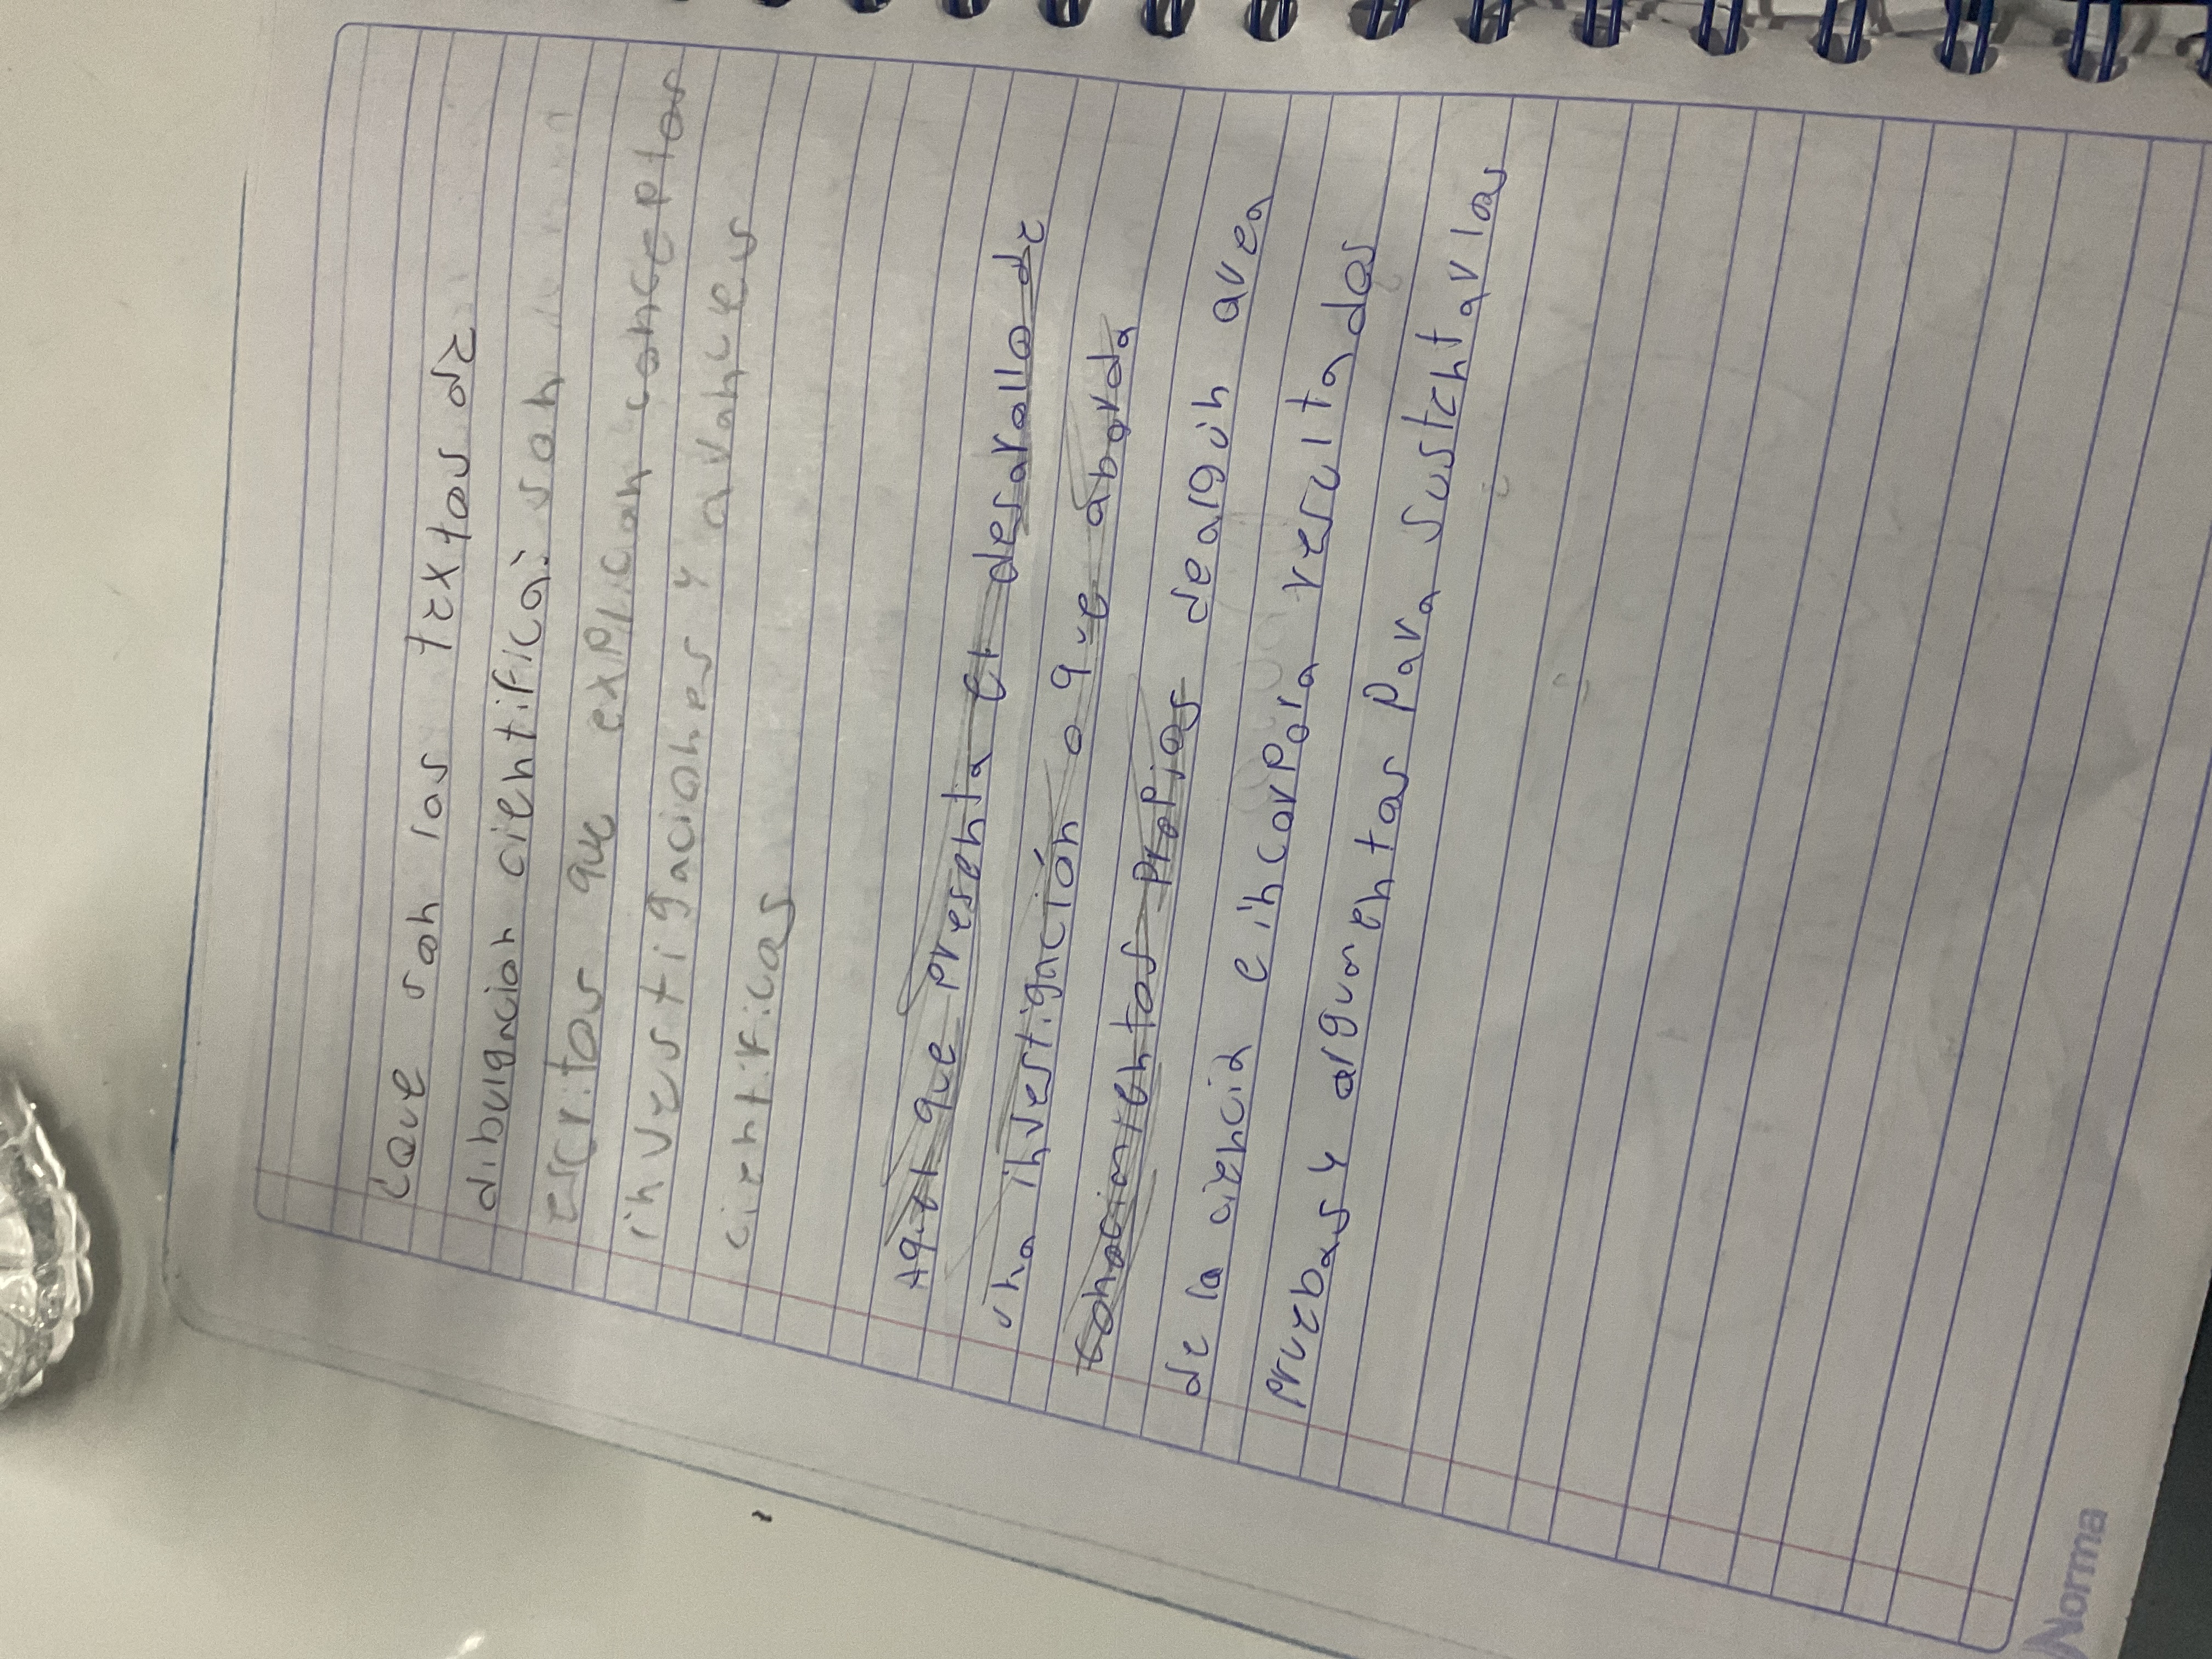 ¿Que son los textos de
dibulgacion cientifica? son
escritos que explican conceptos
investigaciones y avances
cientificas
Aquel que presenta el desarollo de
una investigación o que aborda
conocimientos propios de algún area
de la ciencia e incorpora resultados
pruebas y argumentos para sustentarlos
Norma